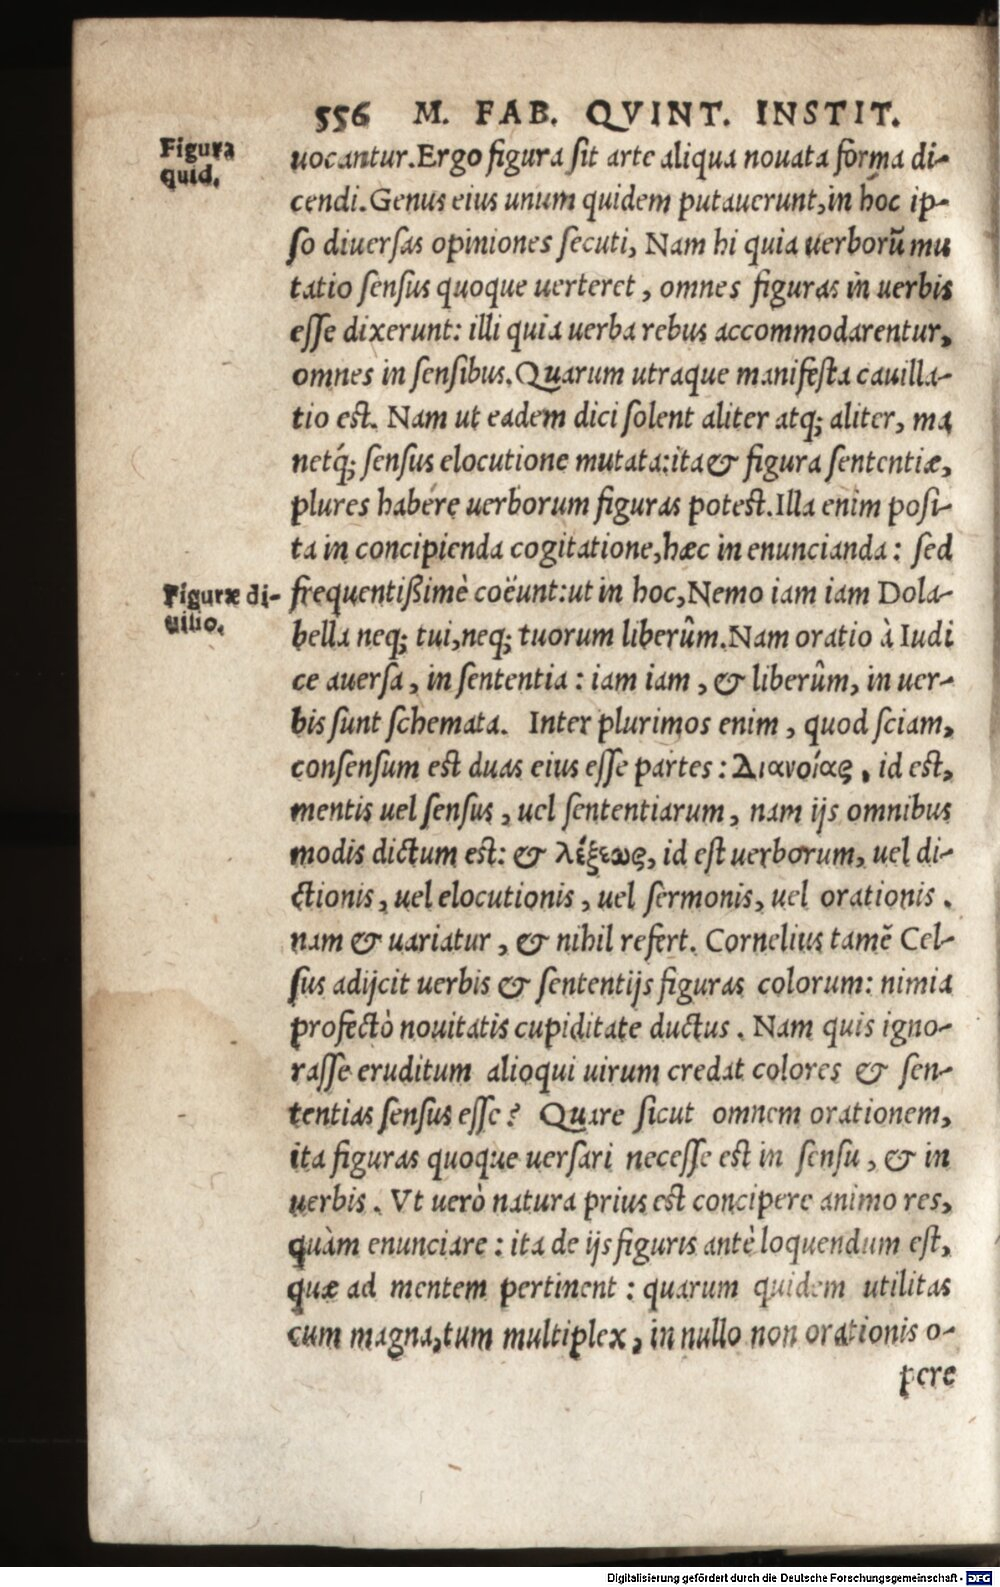 556 M. FAB. QVINT. INSTIT.
Figura
quid.
uocantur. Ergo figura sit arte aliqua nouata forma di-
cendi. Genus eius unum quidem putauerunt, in hoc ip-
so diuersas opiniones secuti, Nam hi quia uerborū mu
tatio sensus quoque uerteret, omnes figuras in uerbis
esse dixerunt: illi quia uerba rebus accommodarentur,
omnes in sensibus. Quarum utraque manifesta cauilla-
tio est. Nam ut eadem dici solent aliter atq; aliter, ma
netq́; sensus elocutione mutata: ita & figura sententiæ,
plures habere uerborum figuras potest. Illa enim posi-
ta in concipienda cogitatione, hæc in enuncianda: sed
Figuræ di-
uisio.
frequentißimè coëunt: ut in hoc, Nemo iam iam Dola-
bella neq; tui, neq; tuorum liberûm. Nam oratio à Iudi
ce auersa, in sententia: iam iam, & liberûm, in uer-
bis sunt schemata. Inter plurimos enim, quod sciam,
consensum est duas eius esse partes: Διανοίας, id est,
mentis uel sensus, uel sententiarum, nam ijs omnibus
modis dictum est: & λέξεως, id est uerborum, uel di-
ctionis, uel elocutionis, uel sermonis, uel orationis.
nam & uariatur, & nihil refert. Cornelius tamē Cel-
sus adijcit uerbis & sententijs figuras colorum: nimia
profectò nouitatis cupiditate ductus. Nam quis igno-
rasse eruditum alioqui uirum credat colores & sen-
tentias sensus esse? Quare sicut omnem orationem,
ita figuras quoque uersari necesse est in sensu, & in
uerbis. Vt uerò natura prius est concipere animo res,
quàm enunciare: ita de ijs figuris antè loquendum est,
quæ ad mentem pertinent: quarum quidem utilitas
cum magna, tum multiplex, in nullo non orationis o-
pere
Digitalisierung gefördert durch die Deutsche Forschungsgemeinschaft - DFG